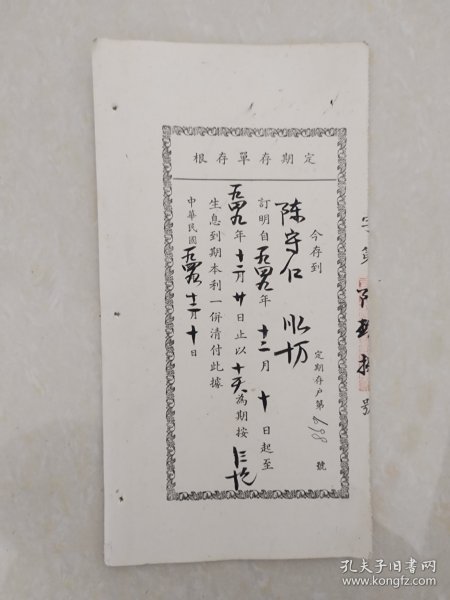 定期存單存根
今存到
定期存户第698號
陈守仁
訂明自一九四九年十二月十日起至
一九四九年十二月廿日止以十天為期按
生息到期本利一併清付此據
中華民國一九四九年十二月十日
號
孔夫子旧书网
www.kongfz.com